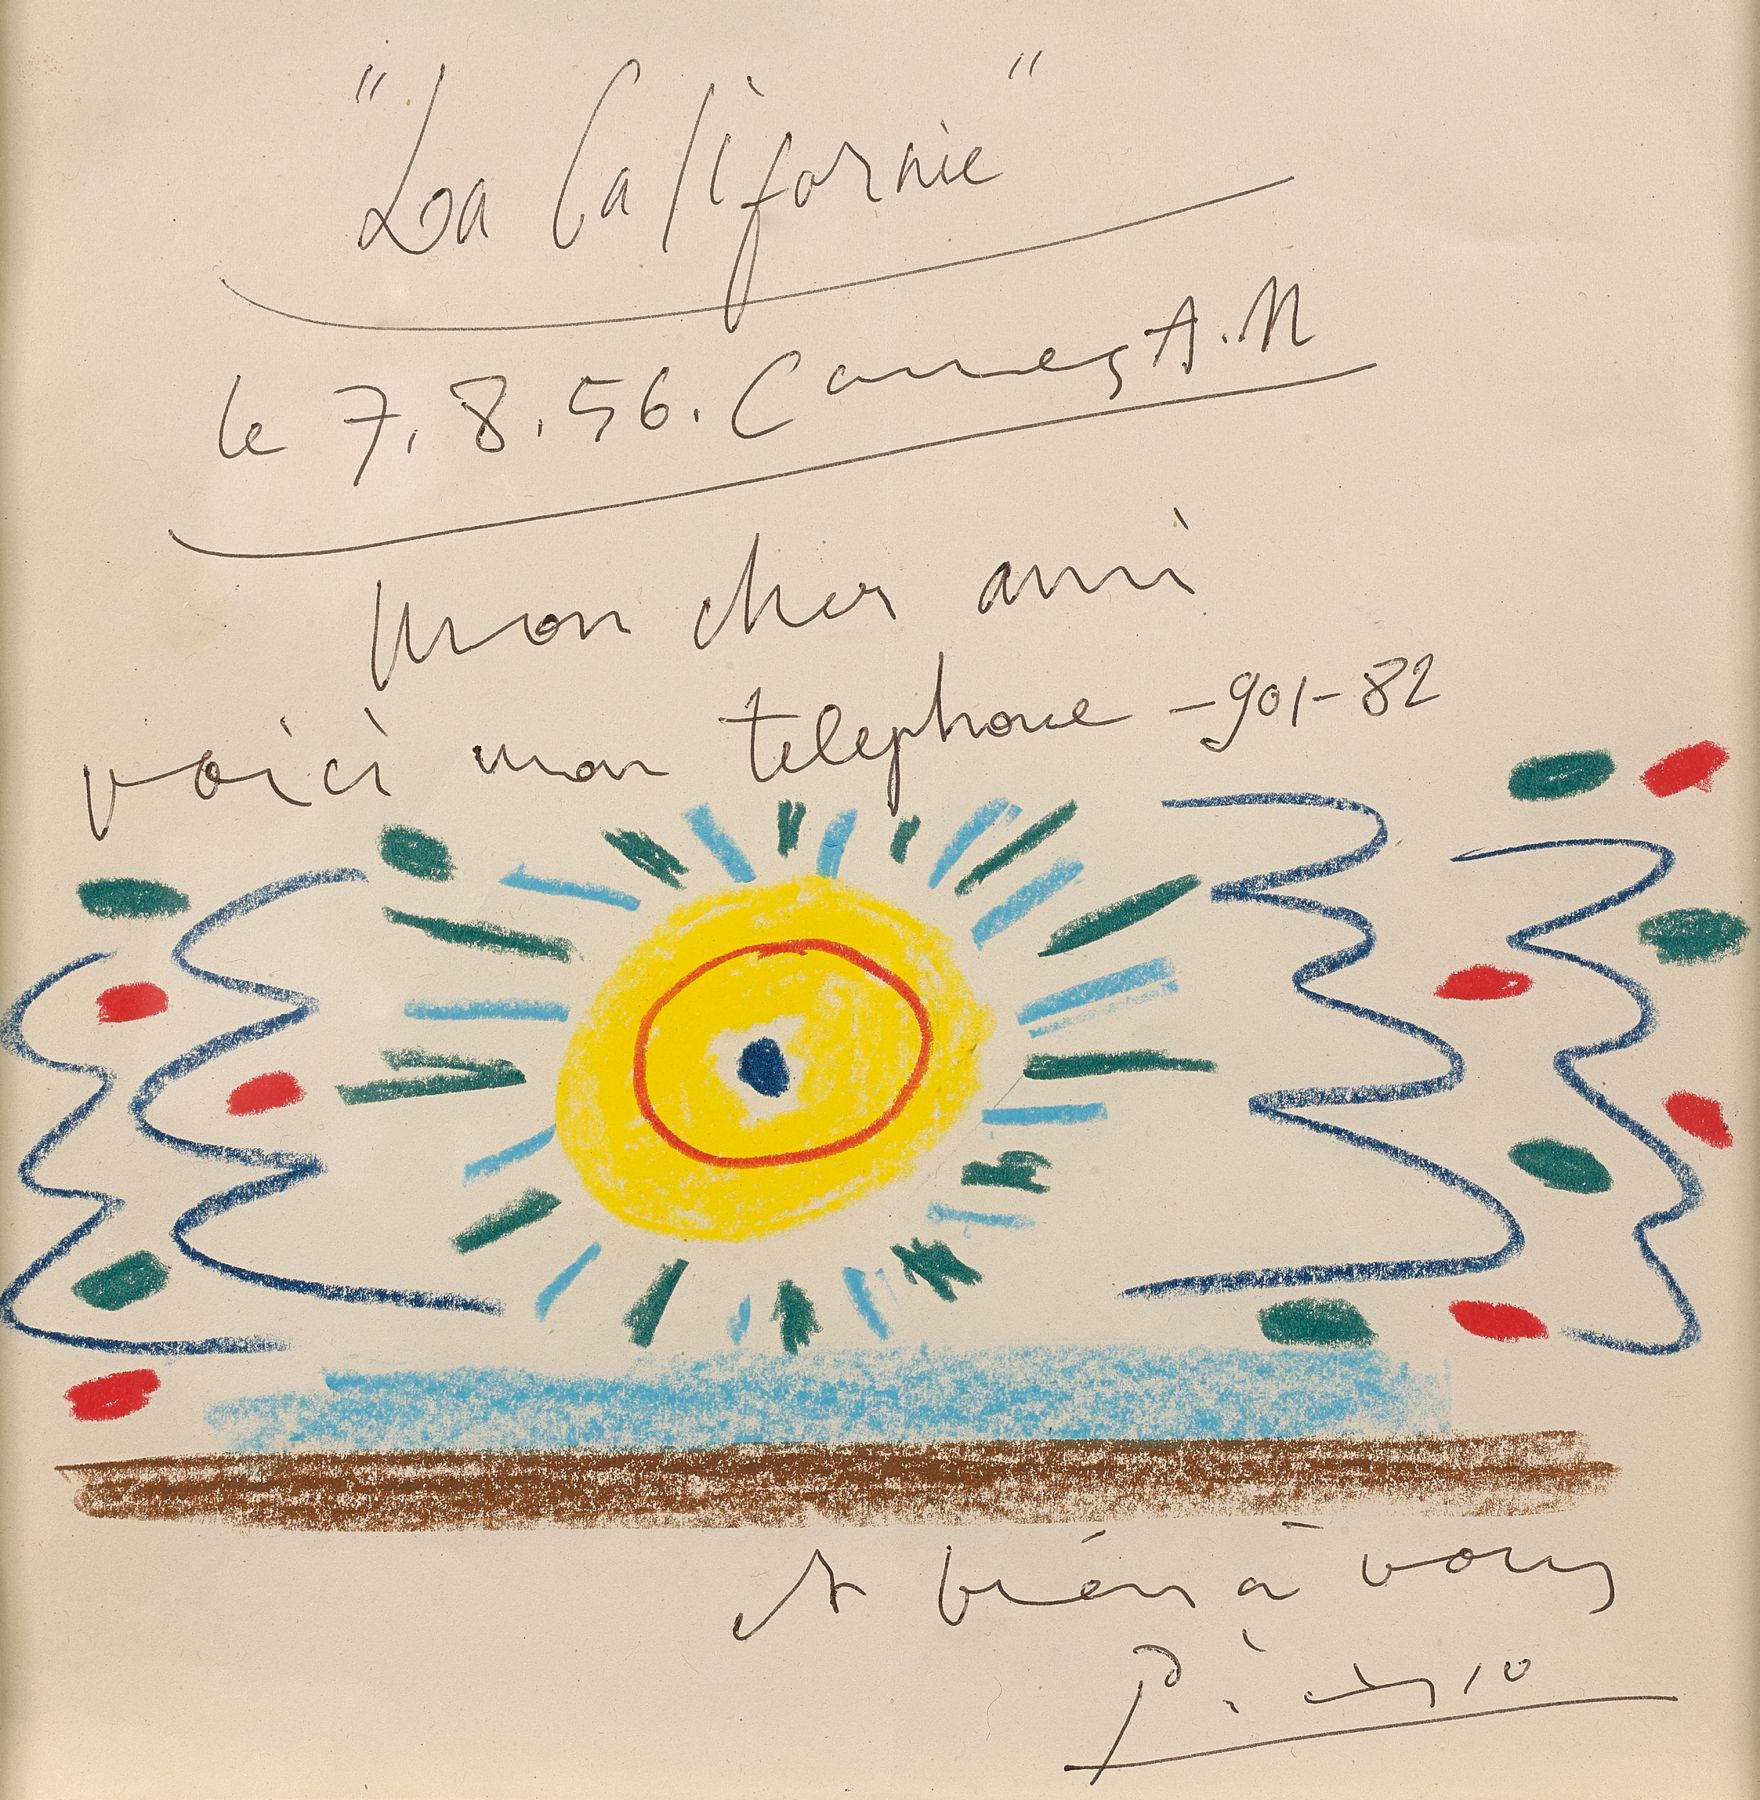 "La Californie"
le 7.8.56. Cannes A.M
mon cher ami
voici mon telephone -901-82
et bien à vous
Picasso